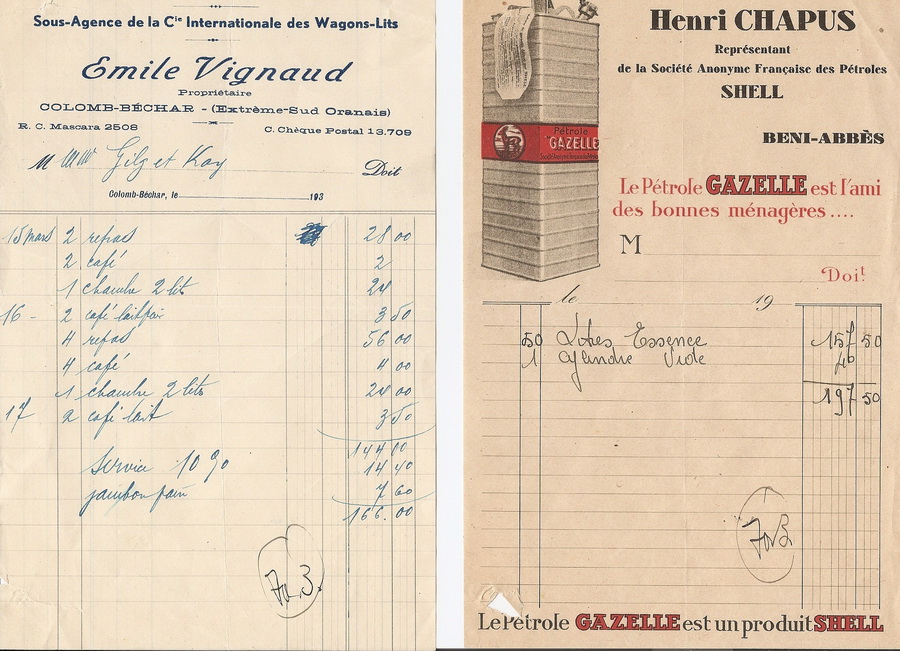 Sous-Agence de la Cie Internationale des Wagons-Lits
Emile Vignaud
Propriétaire
COLOMB-BÉCHAR - (Extrême-Sud Oranais)
R. C. Mascara 2508
C. Chèque Postal 13.709
M Gilg et Kay Doit
Colomb-Béchar, le 193
15 mars 2 repas 28 00
2 café 2
1 chambre 2 lit 24
16 - 2 café lait pain 3 50
4 repas 56 00
4 café 4 00
1 chambre 2 lits 24 00
17 2 café lait 3 50
144 00
Service 10 % 14 40
jambon pain 7 60
166.00
Henri CHAPUS
Représentant
de la Société Anonyme Française des Pétroles
SHELL
BENI-ABBÈS
Pétrole
GAZELLE
Le Pétrole GAZELLE est l'ami
des bonnes ménagères....
M
Doit
le 19
50 Litres Essence 157 50
1 Cylindre Vide 40
197 50
Le Pétrole GAZELLE est un produit SHELL